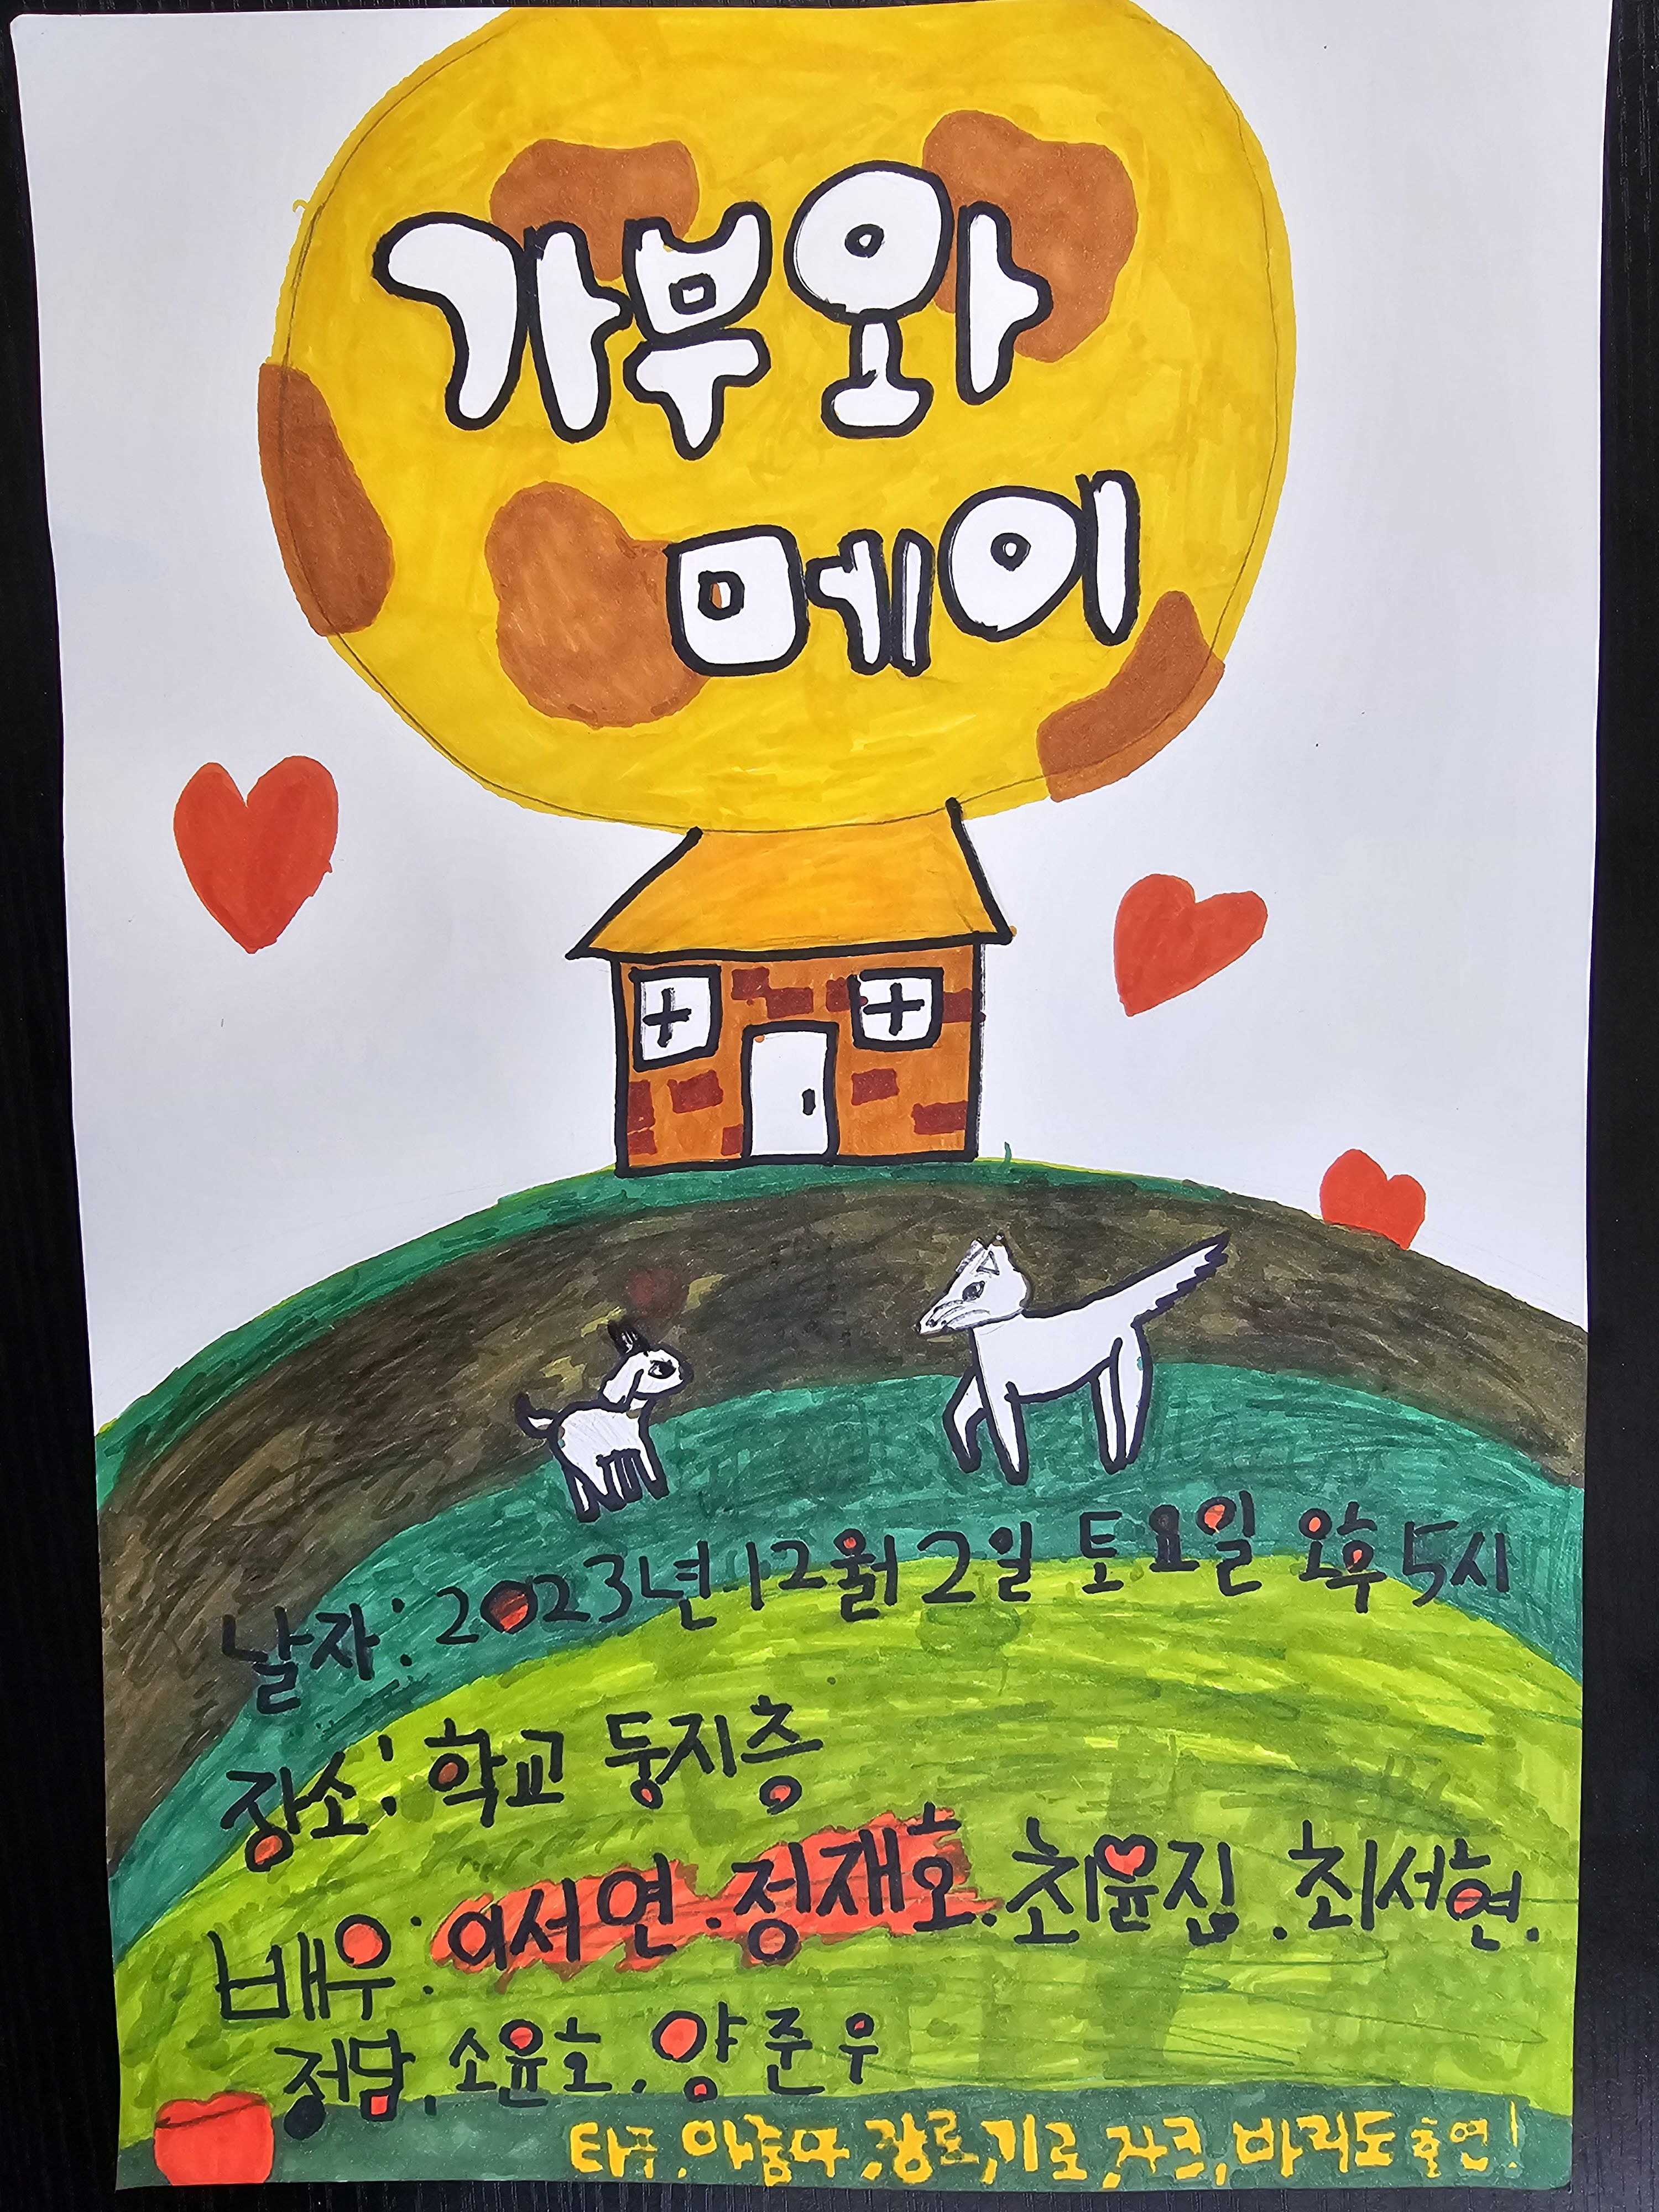 가부와
메이
날자: 2023년 12월 2일 토요일 오후 5시
장소: 학교 둥지층
배우: 여서연. 정재호. 최윤집. 최서현.
정담, 소윤호, 양준우
타푸, 아줌마, 장로, 기로, 자크, 바리도 출연!